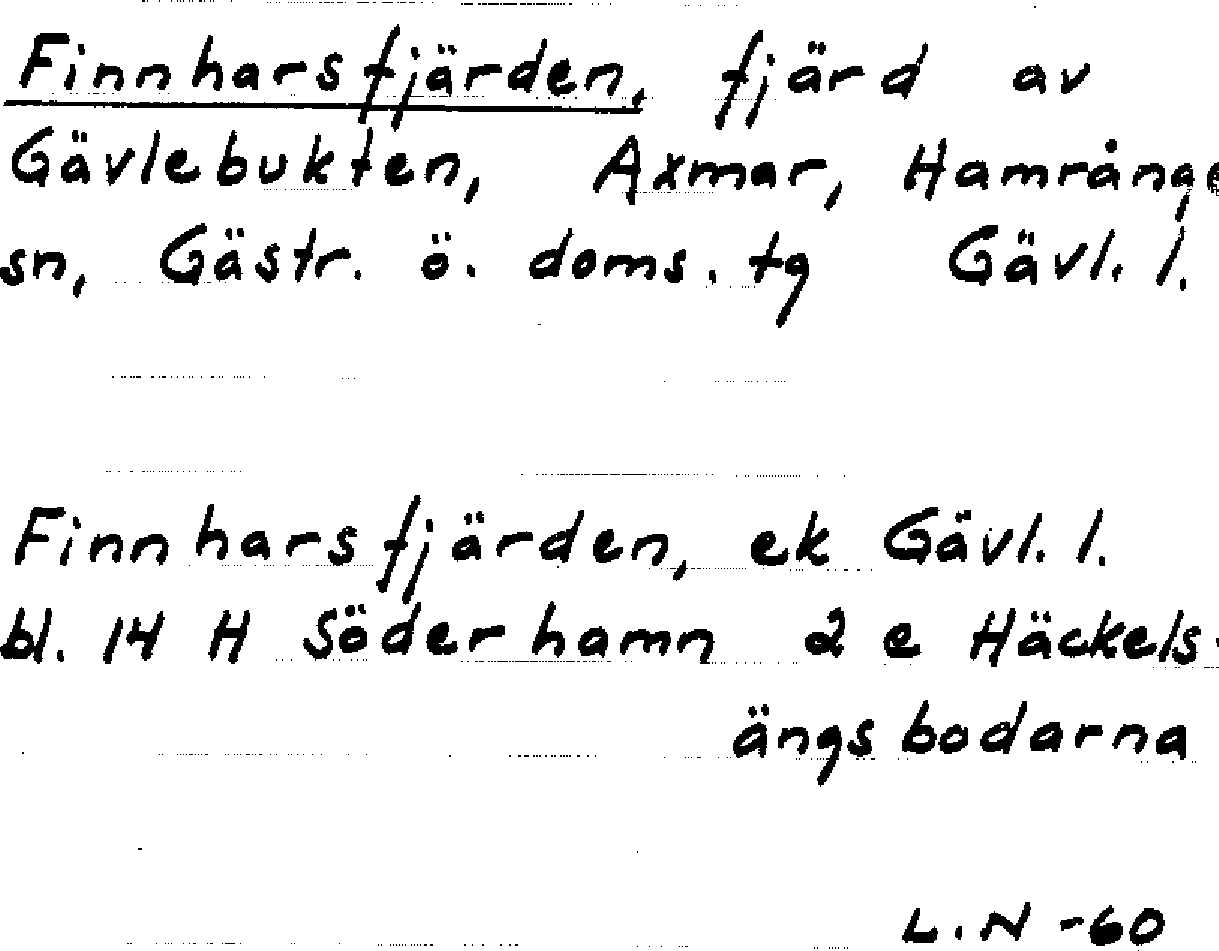 Finnharsfjärden, fjärd av
Gävlebukten, Axmar, Hamrånge
sn, Gästr. ö. doms. tg Gävl. l.
Finnharsfjärden, ek Gävl. l.
bl. 14 H Söderhamn 2 e Häckels-
ängsbodarna
L.N -60